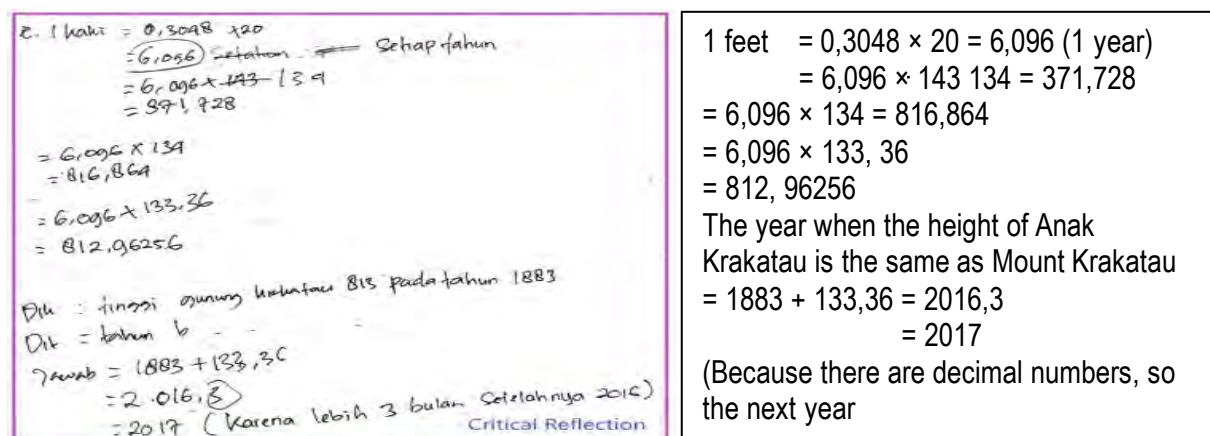 c. 1 kaki = 0,3048 x20
= 6,096 setahun setiap tahun
= 6,096 x 143 134
= 371,728
= 6,096 x 134
= 816,864
= 6,096 x 133,36
= 812,96256
Dik : tinggi gunung krakatau 813 pada tahun 1883
Dit = tahun b
Jawab = 1883 + 133,36
= 2.016,3
= 2017 (Karena lebih 3 bulan setelahnya 2016)
Critical Reflection
1 feet = 0,3048 × 20 = 6,096 (1 year)
= 6,096 × 143 134 = 371,728
= 6,096 × 134 = 816,864
= 6,096 × 133, 36
= 812, 96256
The year when the height of Anak
Krakatau is the same as Mount Krakatau
= 1883 + 133,36 = 2016,3
= 2017
(Because there are decimal numbers, so
the next year